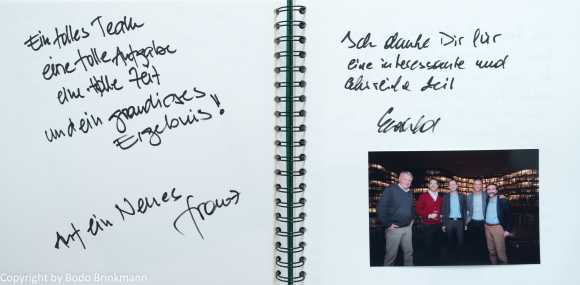 Ein tolles Team
eine tolle Aufgabe
eine tolle Zeit
und ein grandioses
Ergebnis!
Auf ein Neues
Franz
Ich danke Dir für
eine interessante und
lehrreiche Zeit
Copyright by Bodo Brinkmann